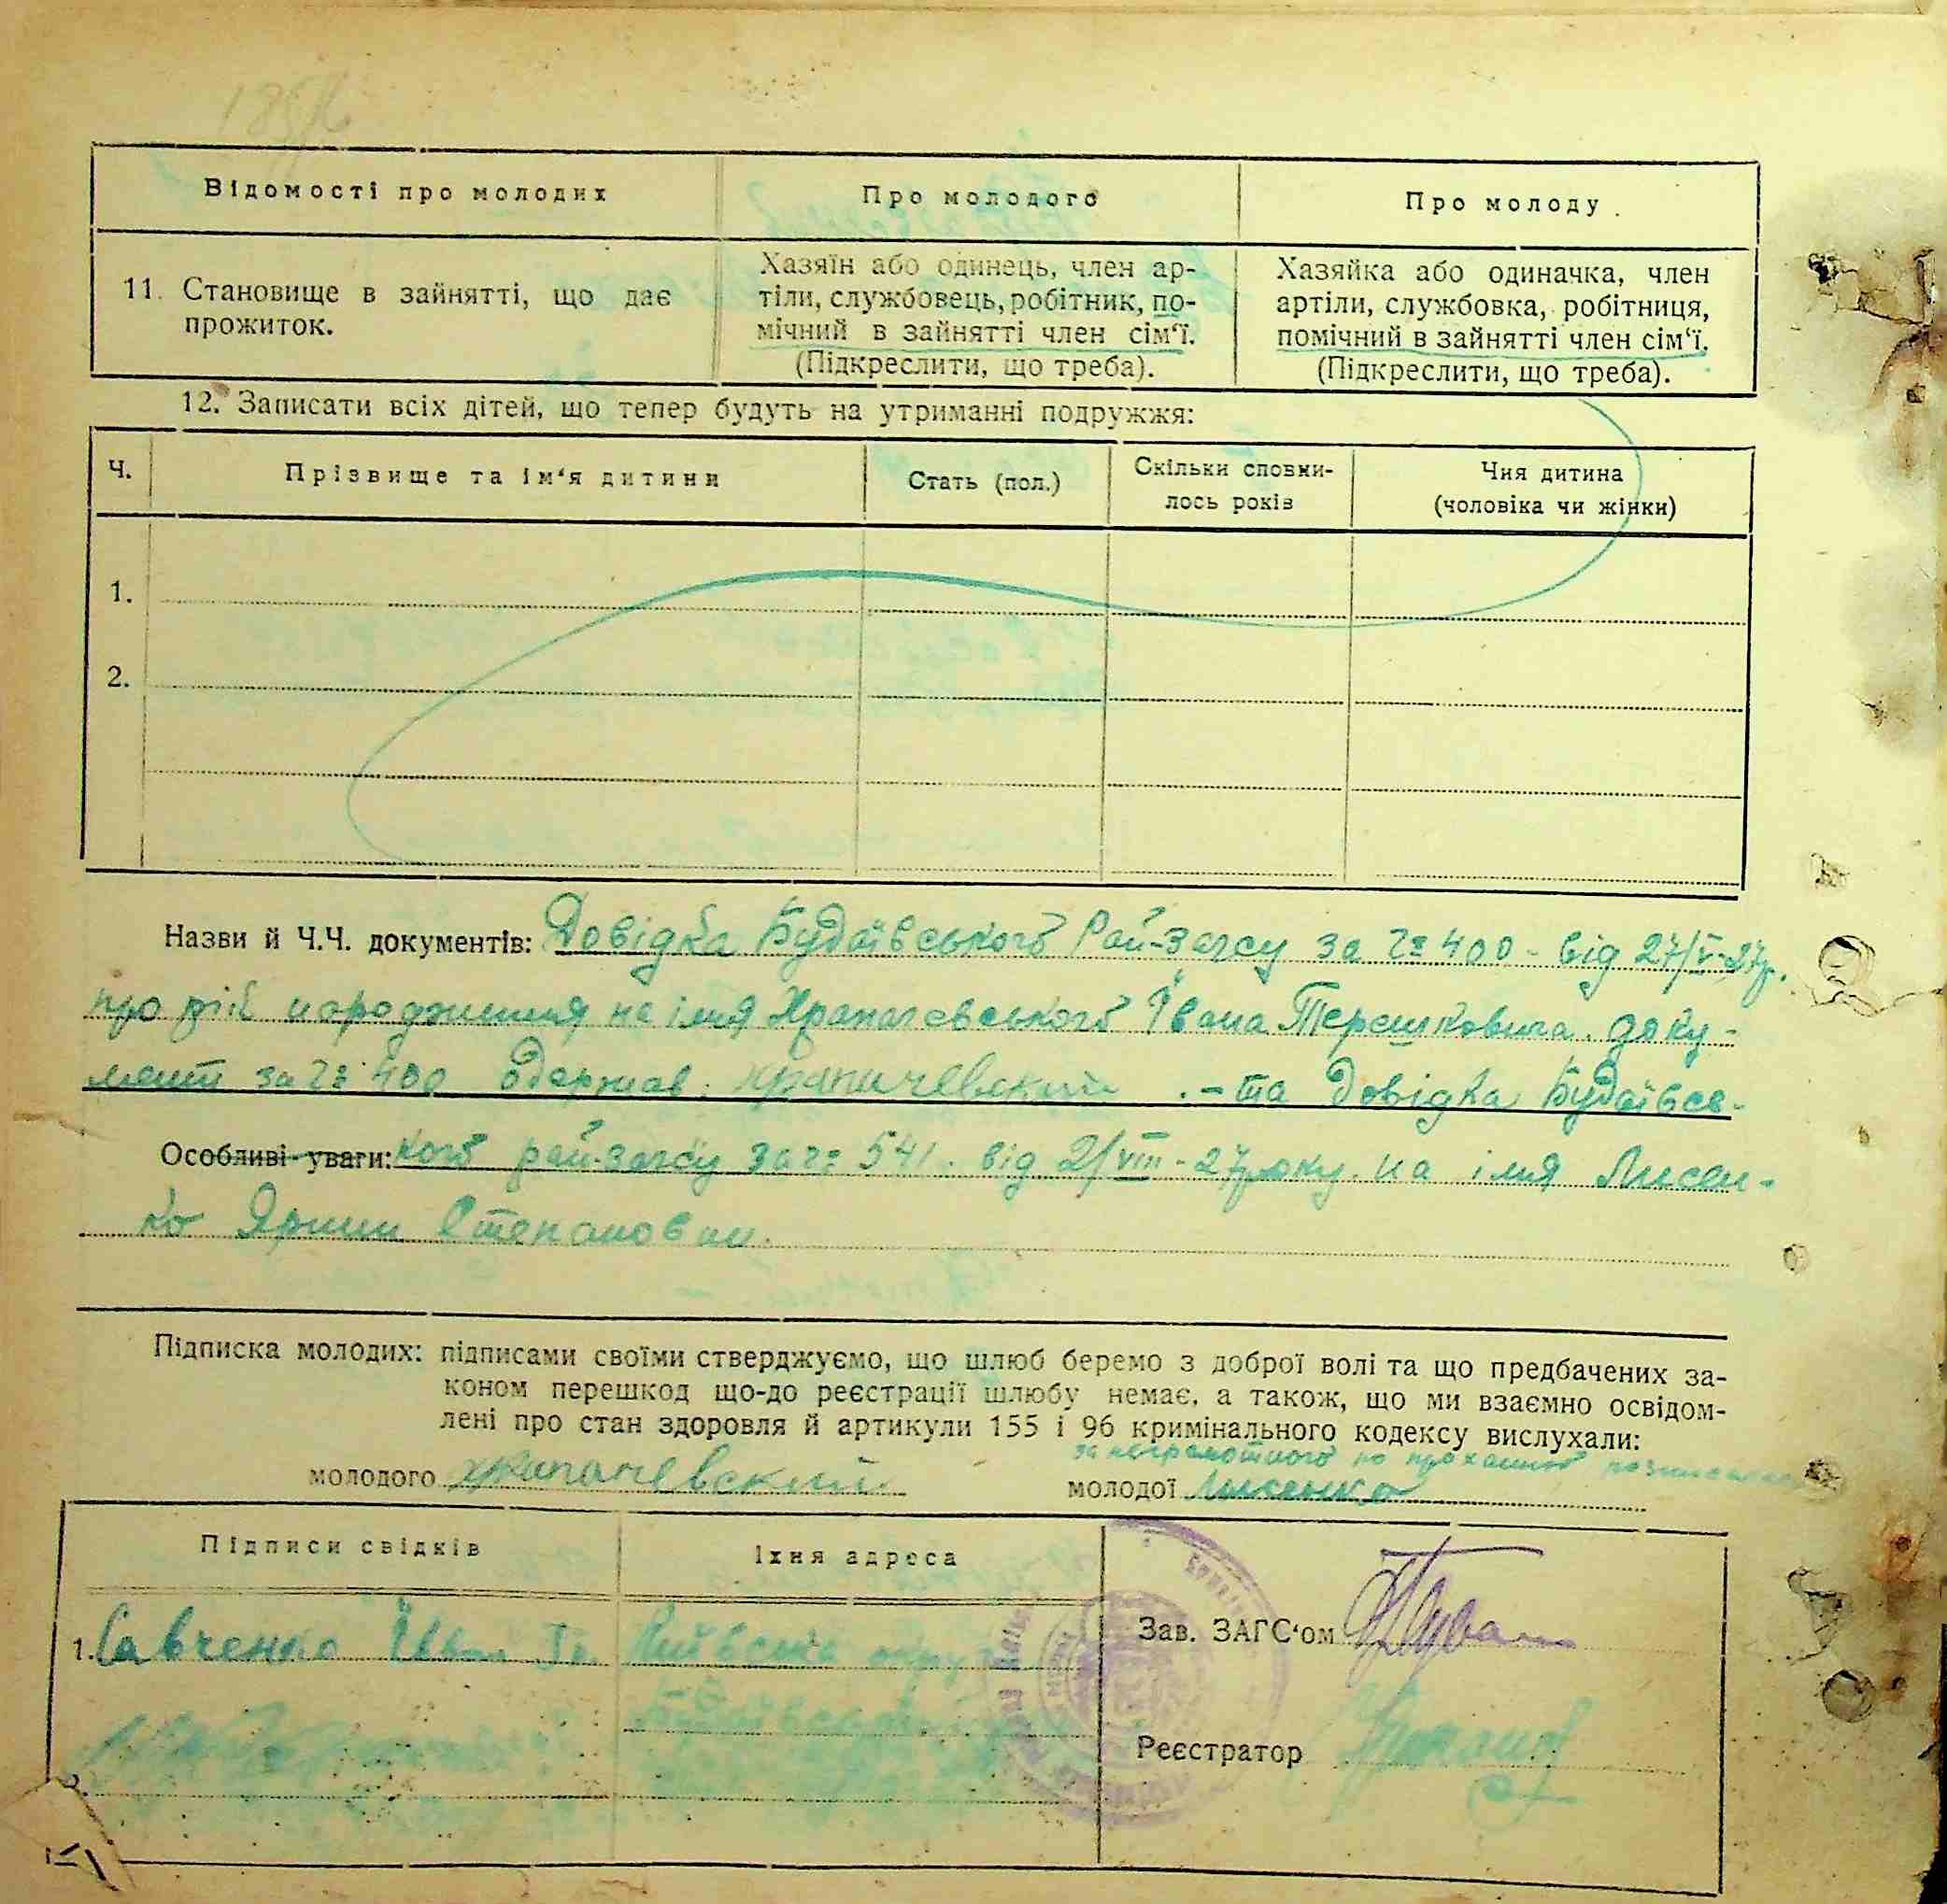 Відомості про молодих
Про молодого
Про молоду.
11. Становище в зайнятті, що дає
прожиток.
Хазяїн або одинець, член ар-
тіли, службовець, робітник, по-
мічний в зайнятті член сім‘ї.
(Підкреслити, що треба).
Хазяйка або одиначка, член
артіли, службовка, робітниця,
помічний в зайнятті член сім‘ї.
(Підкреслити, що треба).
12. Записати всіх дітей, що тепер будуть на утриманні подружжя:
Ч.
Прізвище та ім‘я дитини
Стать (пол.)
Скільки сповни-
лось років
Чия дитина
(чоловіка чи жінки)
1.
2.
Назви й Ч.Ч. документів: Довідка Будаївського Рай-загсу за Ч: 400 - від 27/V-27р.
про рік народження на імя Храпачевського Івана Терешковича. доку-
мент за Ч: 400 одержав: Храпачевский. - та Довідка Будаївсь-
Особливі уваги: кого рай-загсу за Ч: 541. від 2/VIII-27 року. на імя Лисен-
ко Ярини Степановни.
Підписка молодих: підписами своїми стверджуємо, що шлюб беремо з доброї волі та що предбачених за-
коном перешкод що-до реєстрації шлюбу немає, а також, що ми взаємно освідом-
лені про стан здоровля й артикули 155 і 96 кримінального кодексу вислухали:
за неграмотного по проханню
молодого Храпачевский
молодої Лисенко
Підписи свідків
Їхня адреса
1. Савченко Іван
Київська округа
Зав. ЗАГС‘ом
Реєстратор